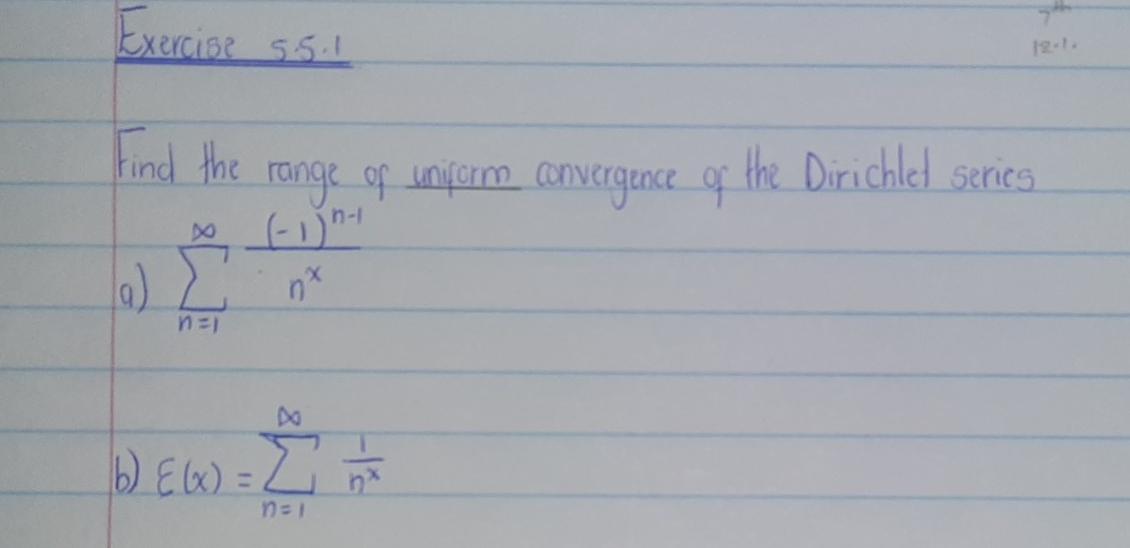 Exercise 5.5.1
7th
12.1.
Find the range of uniform convergence of the Dirichlet series
a) ∑_{n=1}^{∞} (-1)^{n-1} / n^x
b) ξ(x) = ∑_{n=1}^{∞} 1 / n^x